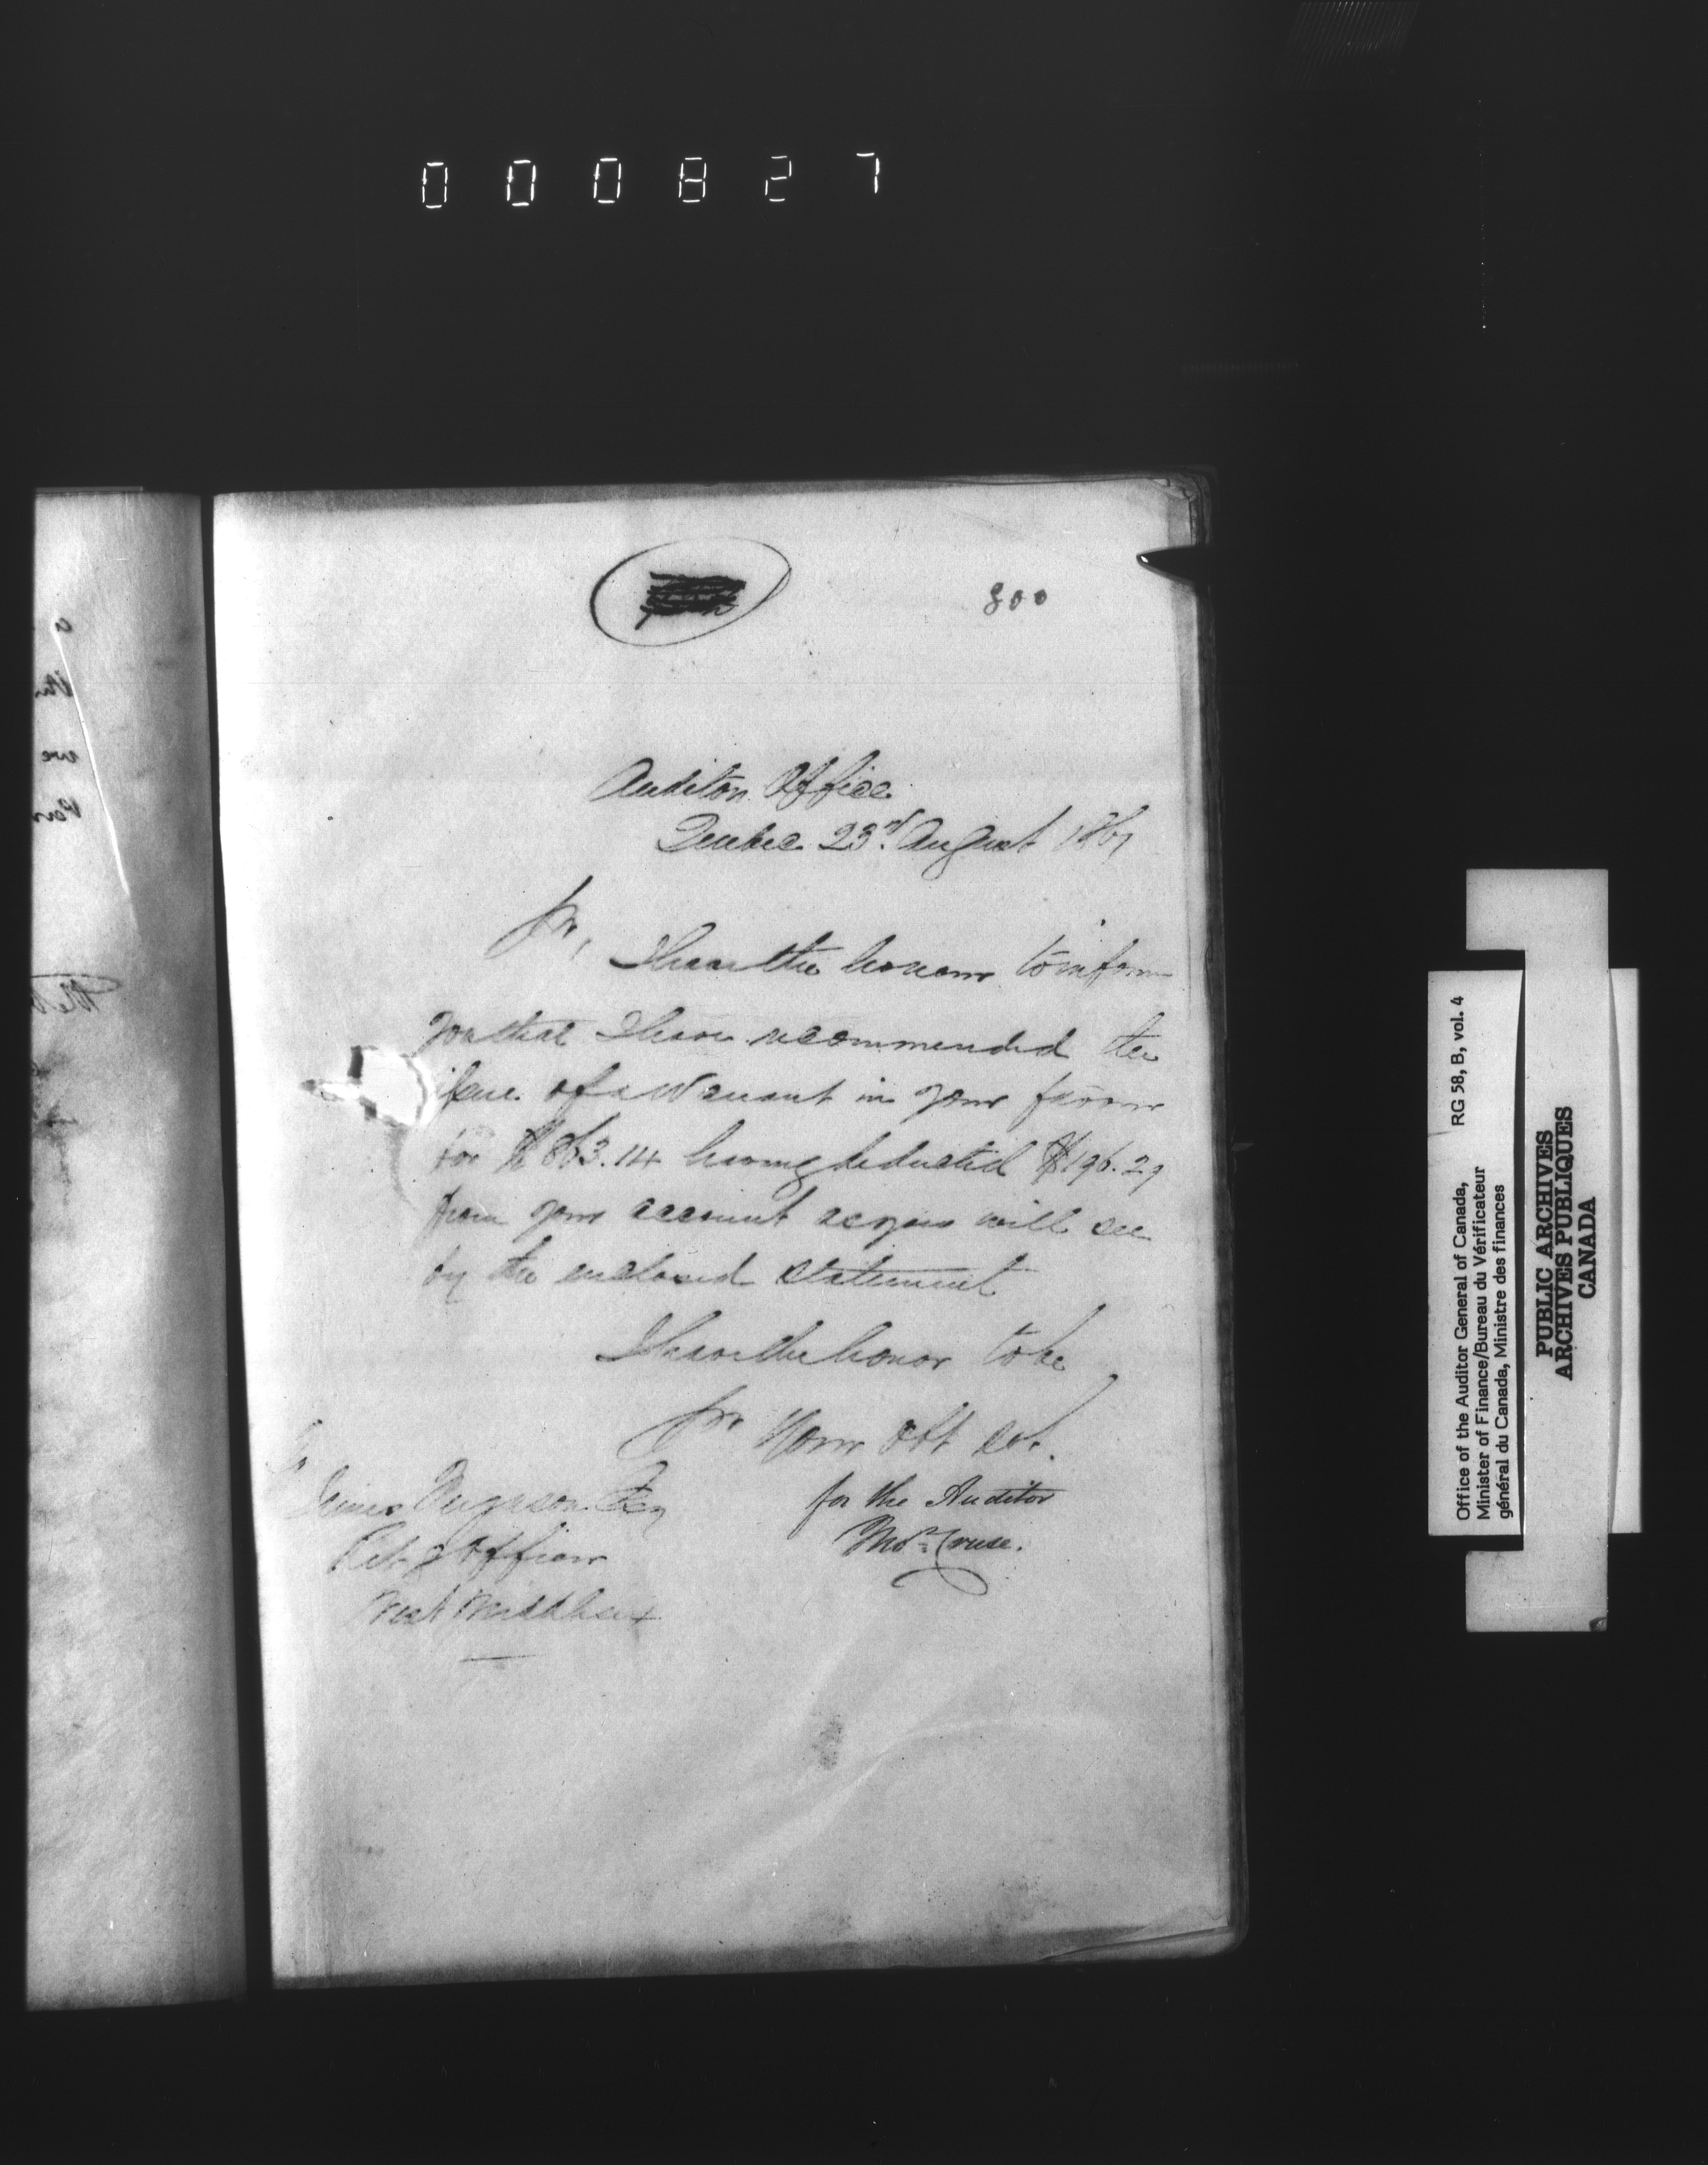 000827
800
Auditor Office
Quebec 23rd August 1861
Sir,
I have the honour to inform
you that I have recommended the
issue of a Warrant in your favour
for $863.14 having deducted $196.29
from your account as you will see
by the enclosed statement
I have the honor to be
Sir Your Obt Svt.
for the Auditor
Thos. Cruse.
James Ferguson Esq
Retg Officer
West Middlesex
RG 58, B, vol. 4
Office of the Auditor General of Canada,
Minister of Finance/Bureau du Vérificateur
général du Canada, Ministre des finances
PUBLIC ARCHIVES
ARCHIVES PUBLIQUES
CANADA